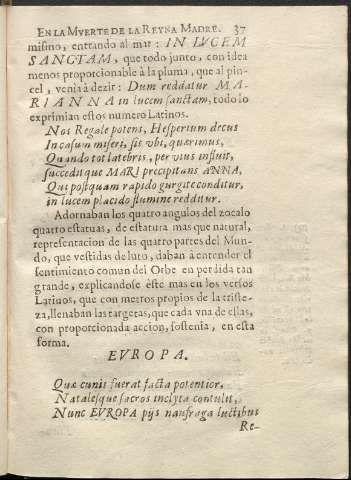 EN LA MVERTE DE LA REYNA MADRE. 37
mismo, entrando al mar: IN LVCEM
SANCTAM, que todo junto, con idea
menos proporcionable à la pluma, que al pin-
cel, venia à dezir: Dum reddatur MA-
RIANNA in lucem sanctam, todo lo
exprimian estos numero Latinos.
Nos Regale potens, Hesperium decus
In casum miseri, sis vbi, quærimus,
Quando tot latebris, per vius influit,
succedit que MARI præcipitans ANNA,
Qui postquam rapido gurgite conditur,
in lucem placido flumine redditur.
Adornaban los quatro angulos del zocalo
quatro estatuas, de estatura mas que natural,
representacion de las quatro partes del Mun-
do, que vestidas de luto, daban à entender el
sentimiento comun del Orbe en perdida tan
grande, explicandose éste mas en los versos
Latinos, que con metros propios de la triste-
za, llenaban las targetas, que cada vna de ellas,
con proporcionada accion, sostenia, en esta
forma.
EVROPA.
Quæ cunis fuerat facta potentior,
Natalesque sacros inclyta contulit,
Nunc EVROPA pijs naufraga luctibus
Re-